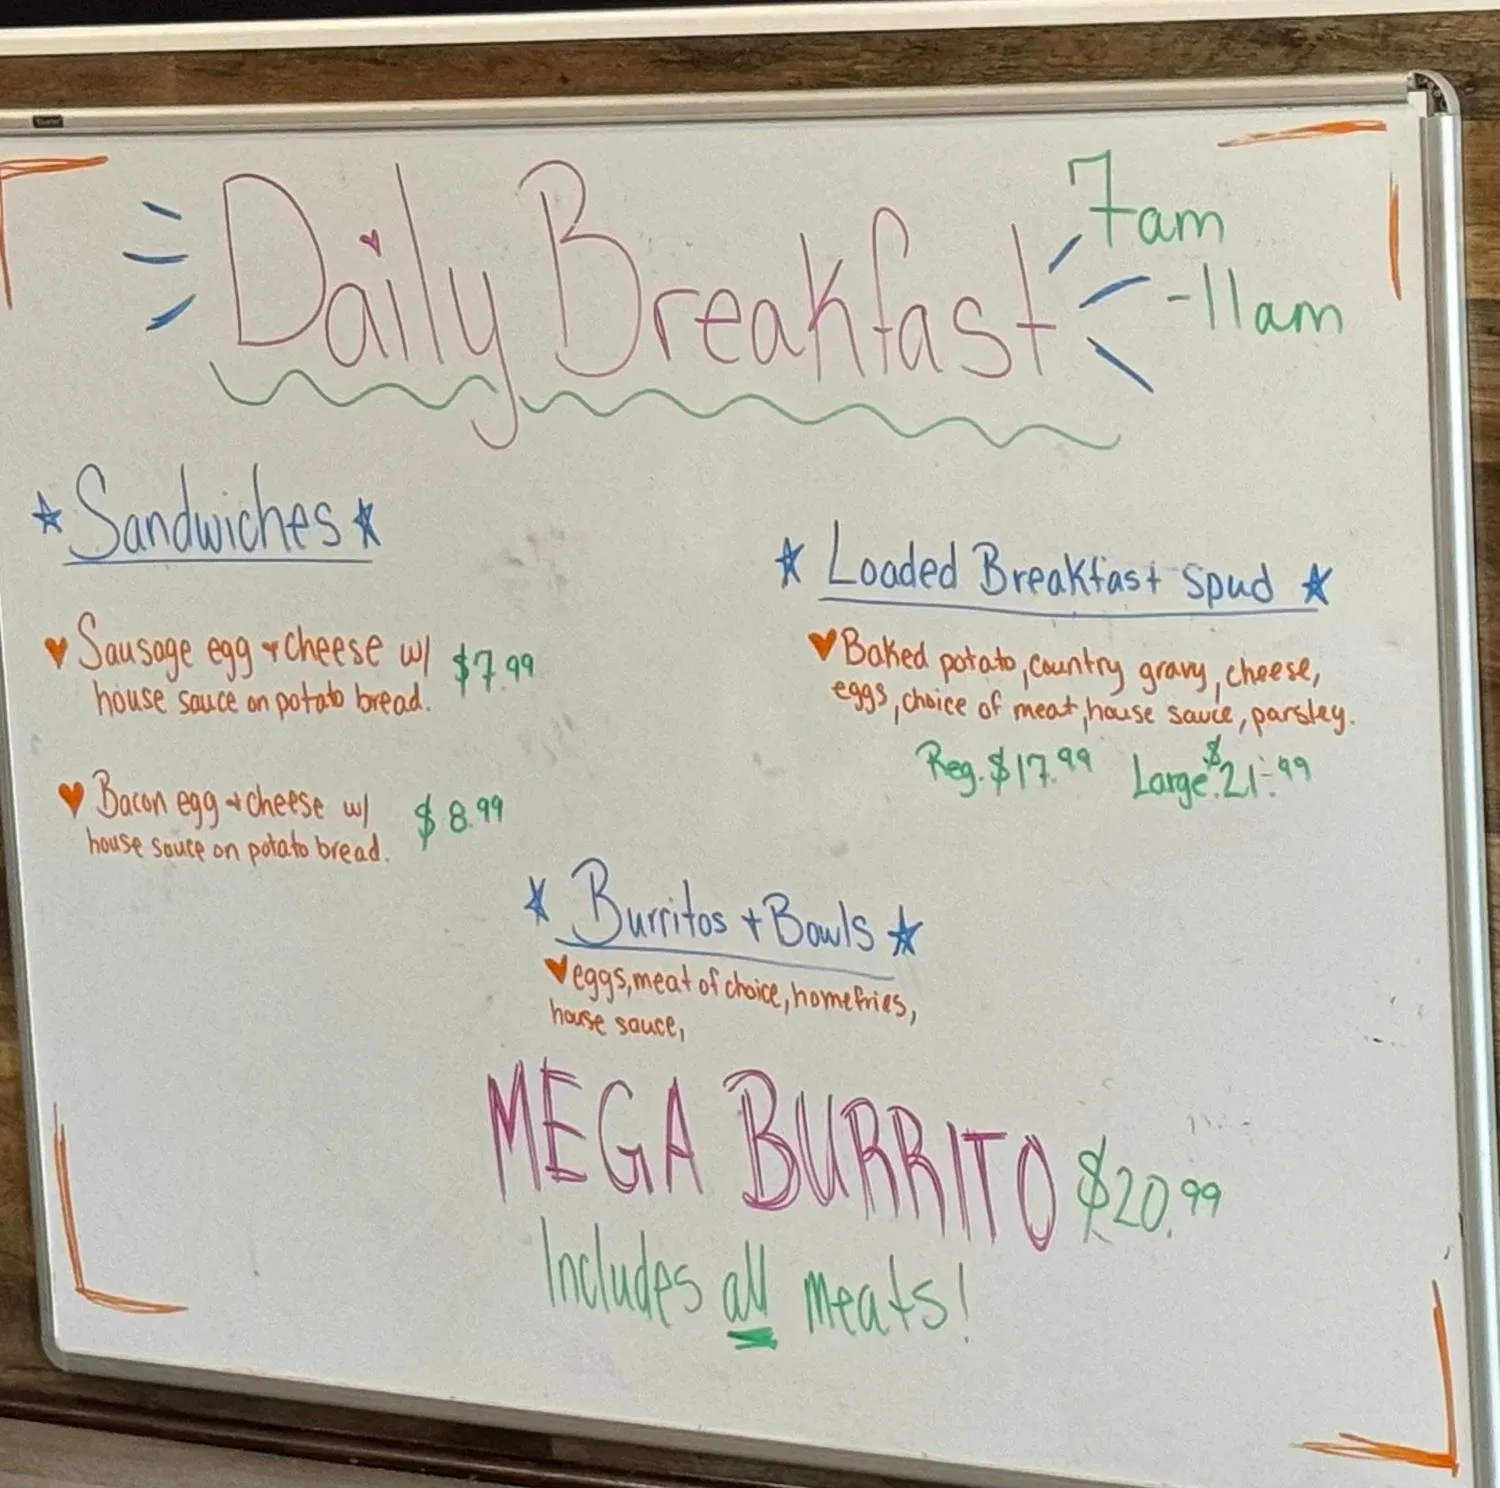 Daily Breakfast
7am
-11am
Sandwiches
Sausage egg + cheese w/ $7.99
house sauce on potato bread.
Bacon egg + cheese w/ $8.99
house sauce on potato bread.
Loaded Breakfast Spud
Baked potato, country gravy, cheese,
eggs, choice of meat, house sauce, parsley.
Reg. $17.99 Large. $21.99
Burritos + Bowls
eggs, meat of choice, homefries,
house sauce,
MEGA BURRITO $20.99
Includes all meats!